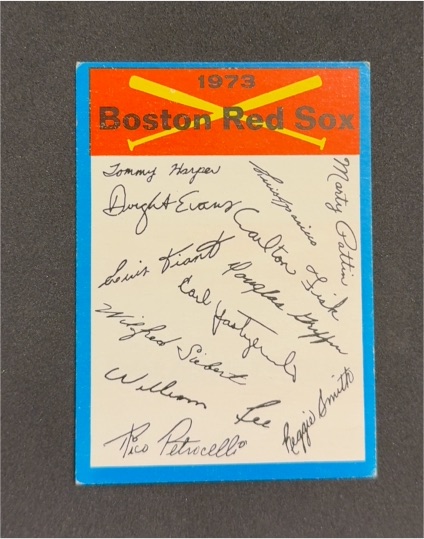 1973
Boston Red Sox
Tommy Harper
Dwight Evans
Luis Aparicio
Marty Pattin
Carlton Fisk
Luis Tiant
Douglas Griffin
Carl Yastrzemski
Wilfred Siebert
William Lee
Reggie Smith
Rico Petrocelli